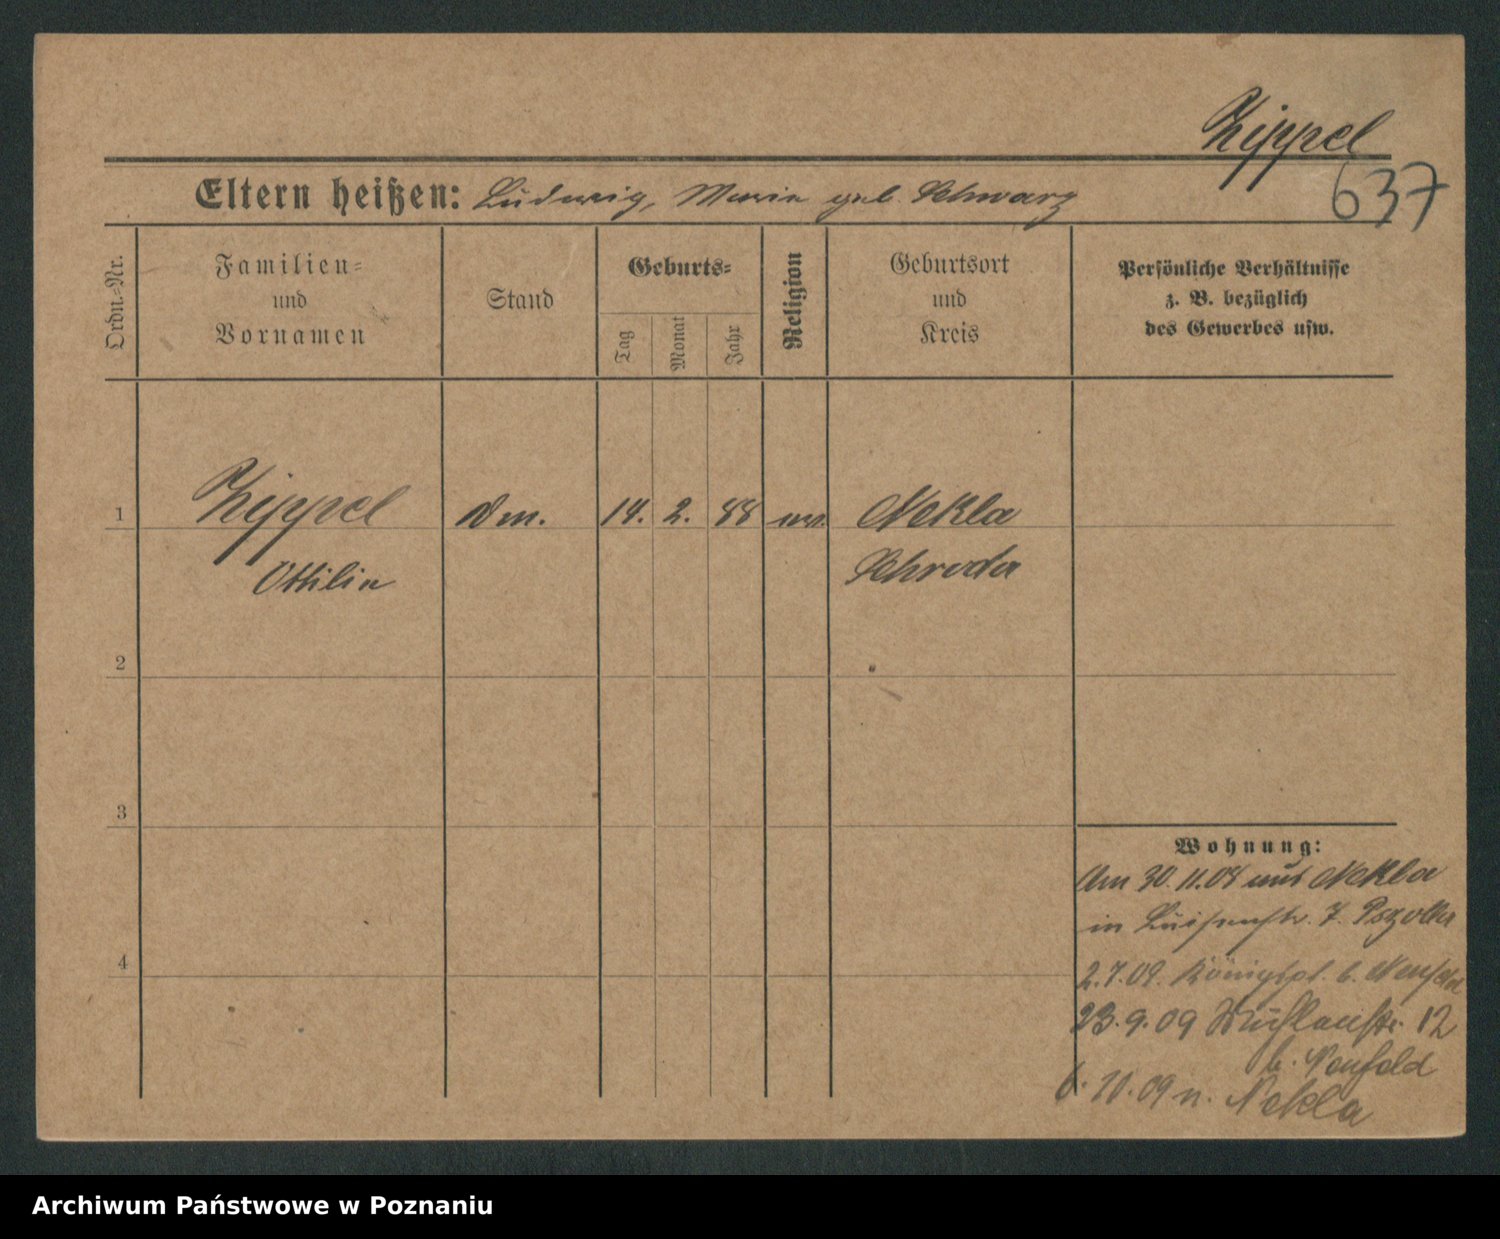 Zippel
637
Eltern heißen: Ludwig, Marie geb. Schwarz
Ordn.-Nr.
Familien-
und
Vornamen
Stand
Geburts-
Tag
Monat
Jahr
Religion
Geburtsort
und
Kreis
Persönliche Verhältnisse
z. B. bezüglich
des Gewerbes usw.
1 Zippel 14. 2. 88 ev. Nekla
Ottilie Schroda
2
3
4
Wohnung:
Am 30.11.08 aus Nekla
in Luisenstr. 7.
2.7.09. Königspl. b. Neufeld
23.9.09 12
b. Neufeld
6.10.09 n. Nekla
Archiwum Państwowe w Poznaniu